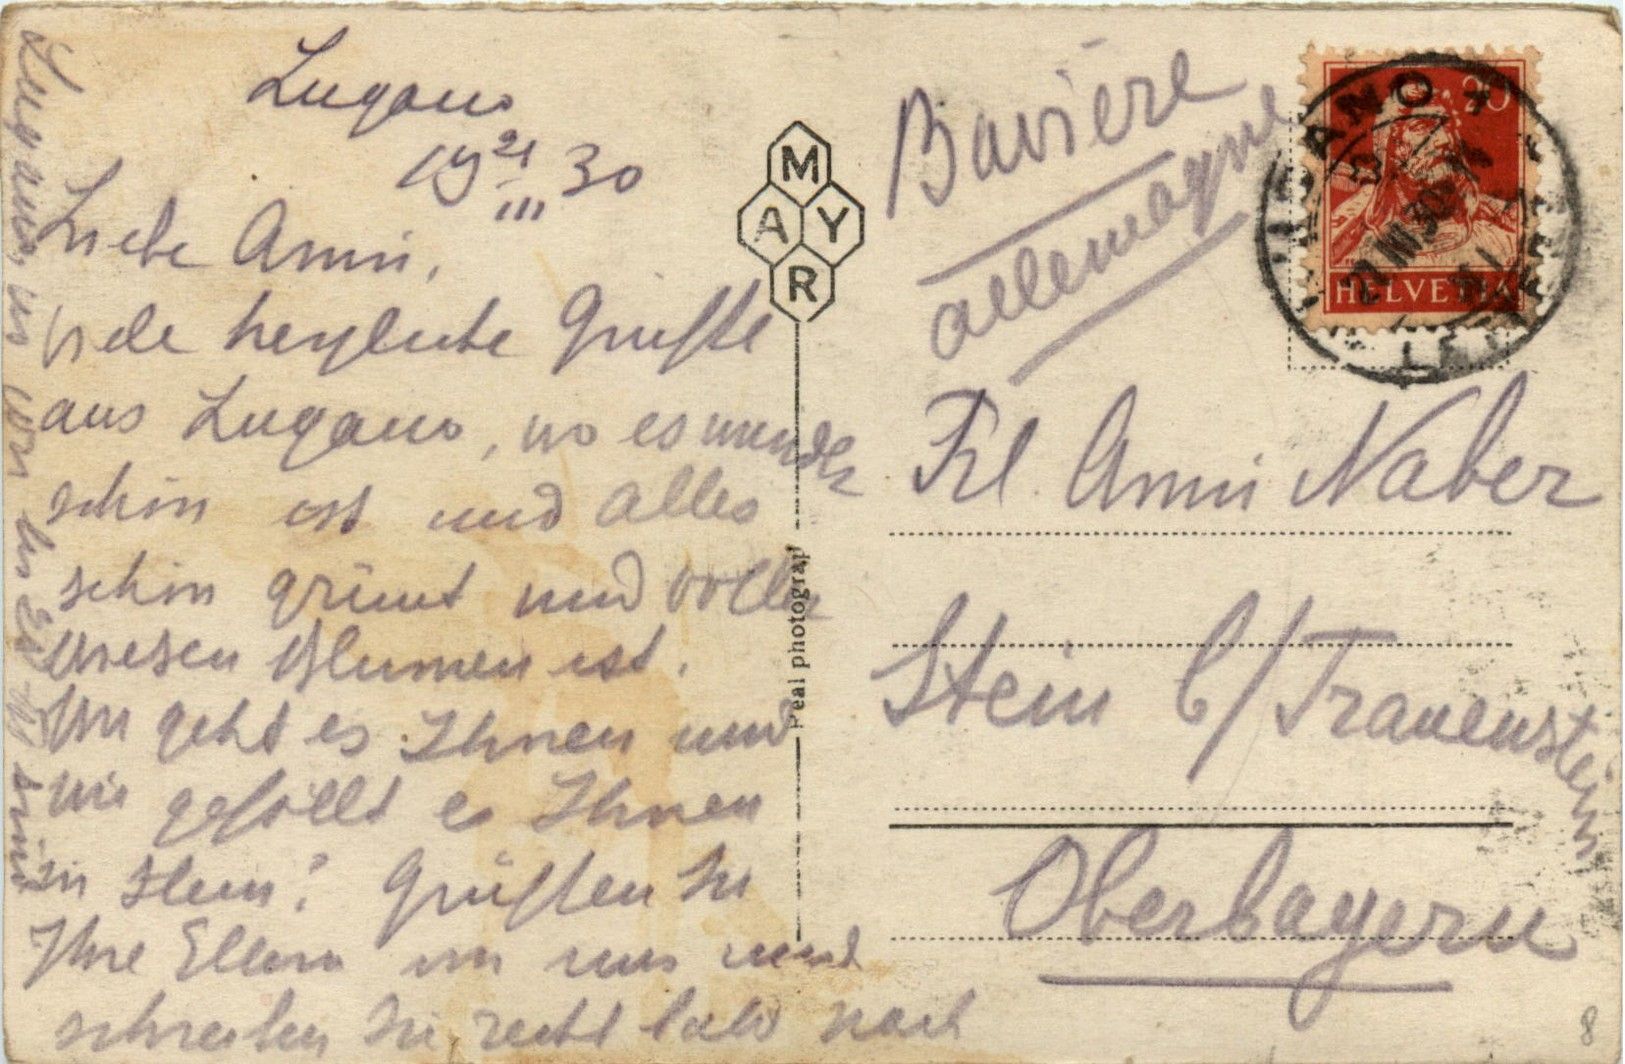 Lugano
19 21/III 30
Liebe Anni,
viele herzliche Grüße
aus Lugano, wo es wunder
schön ist und alles
schön grünt und voller
Wiesen Blumen ist.
Wie geht es Ihnen und
wie gefällt es Ihnen
in Stein? Grüßen Sie
Ihre Eltern von uns und
schreiben Sie recht bald nach
Lugano, wo wir
M
A Y
R
Real photograph
Bavière
allemagne
Frl. Anni Naber
Stein b/Trauenstein
Oberbayern
LUGANO
LETTERE
21.III.30
20
HELVETIA
8